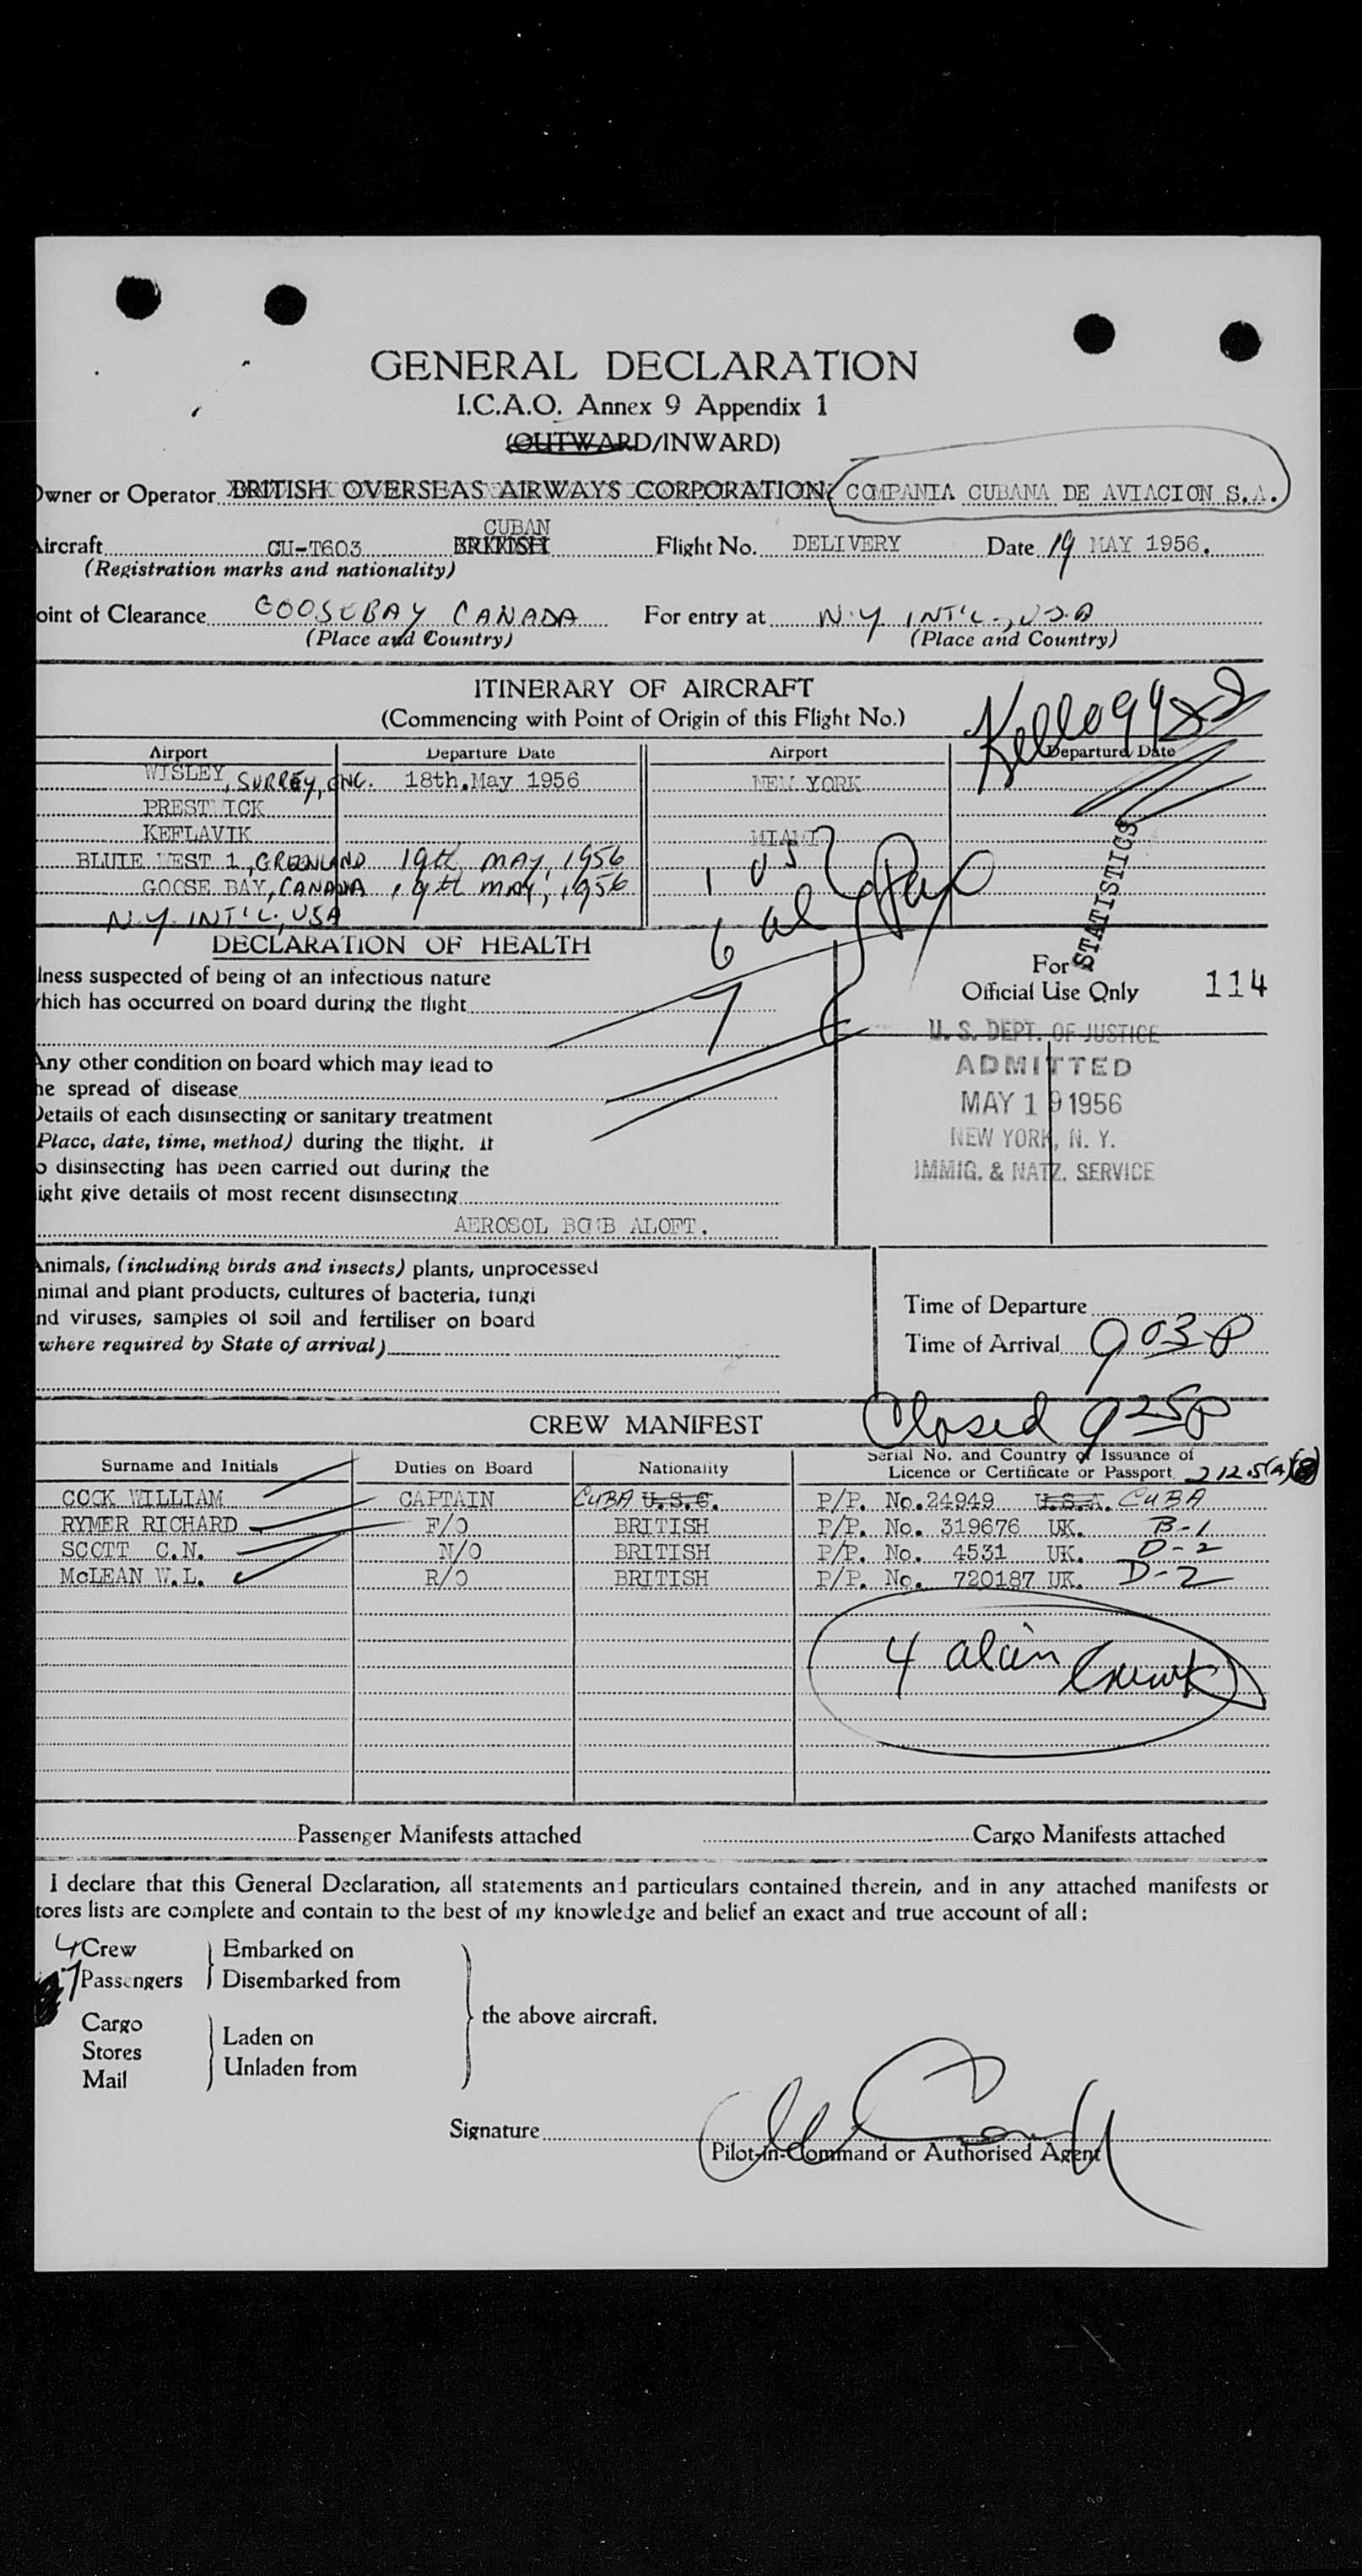 GENERAL DECLARATION
I.C.A.O. Annex 9 Appendix 1
(OUTWARD/INWARD)
Owner or Operator BRITISH OVERSEAS AIRWAYS CORPORATION COMPANIA CUBANA DE AVIACION S.A.
CUBAN
Aircraft CU-T603 BRITISH Flight No. DELIVERY Date 19 MAY 1956.
(Registration marks and nationality)
oint of Clearance GOOSEBAY CANADA For entry at N.Y. INT'L., USA
(Place and Country) (Place and Country)
ITINERARY OF AIRCRAFT
(Commencing with Point of Origin of this Flight No.)
Kellogg
Airport Departure Date Airport Departure Date
WISLEY, SURREY, ENG. 18th.May 1956 NEW YORK
PRESTWICK
KEFLAVIK MIAMI
BLUIE WEST 1, GREENLAND 19th MAY, 1956 1 US
GOOSE BAY, CANADA 19th MAY, 1956 6 al Pax
N.Y. INT'L., USA
7
STATISTICS
DECLARATION OF HEALTH
lness suspected of being of an infectious nature
which has occurred on board during the flight
For
Official Use Only 114
U. S. DEPT. OF JUSTICE
ADMITTED
MAY 19 1956
NEW YORK, N. Y.
IMMIG. & NATZ. SERVICE
Any other condition on board which may lead to
he spread of disease
Details of each disinsecting or sanitary treatment
Place, date, time, method) during the flight. If
o disinsecting has been carried out during the
ight give details of most recent disinsecting
AEROSOL BOMB ALOFT.
Animals, (including birds and insects) plants, unprocessed
nimal and plant products, cultures of bacteria, fungi
nd viruses, samples of soil and fertiliser on board
where required by State of arrival)
Time of Departure
Time of Arrival 903P
Closed 925P
CREW MANIFEST
Surname and Initials Duties on Board Nationality Serial No. and Country of Issuance of
Licence or Certificate or Passport 212.5(A)(3)
COCK WILLIAM CAPTAIN CUBA U.S.C. P/P. No.24949 U.S.A. CUBA
RYMER RICHARD F/O BRITISH P/P. No. 319676 UK. B-1
SCOTT C.N. N/O BRITISH P/P. No. 4531 UK. D-2
McLEAN W.L. R/O BRITISH P/P. No. 720187 UK. D-2
4 alien
Passenger Manifests attached Cargo Manifests attached
I declare that this General Declaration, all statements and particulars contained therein, and in any attached manifests or
tores lists are complete and contain to the best of my knowledge and belief an exact and true account of all:
4 Crew Embarked on
7 Passengers Disembarked from
the above aircraft.
Cargo
Stores
Mail
Laden on
Unladen from
Signature
Pilot-in-Command or Authorised Agent